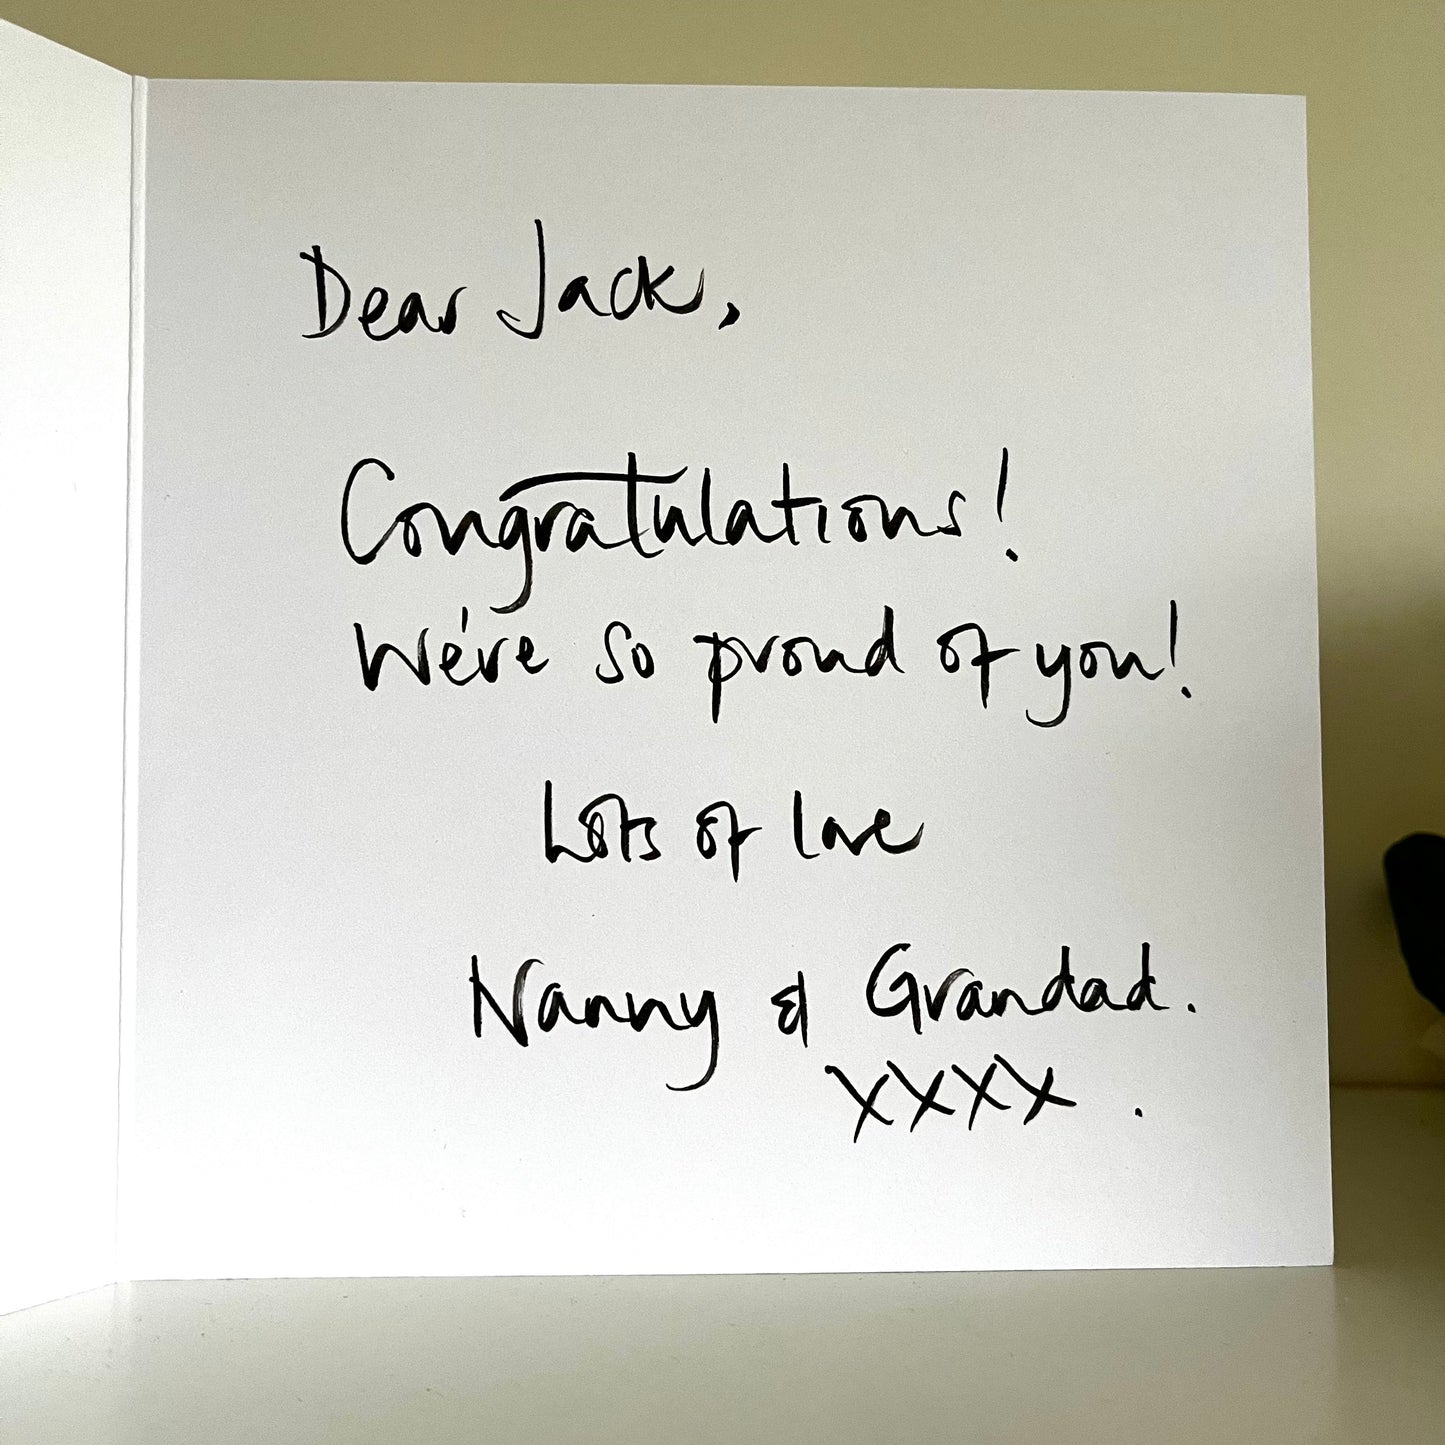 Dear Jack,
Congratulations!
We're so proud of you!
Lots of love
Nanny & Grandad.
xxxx .